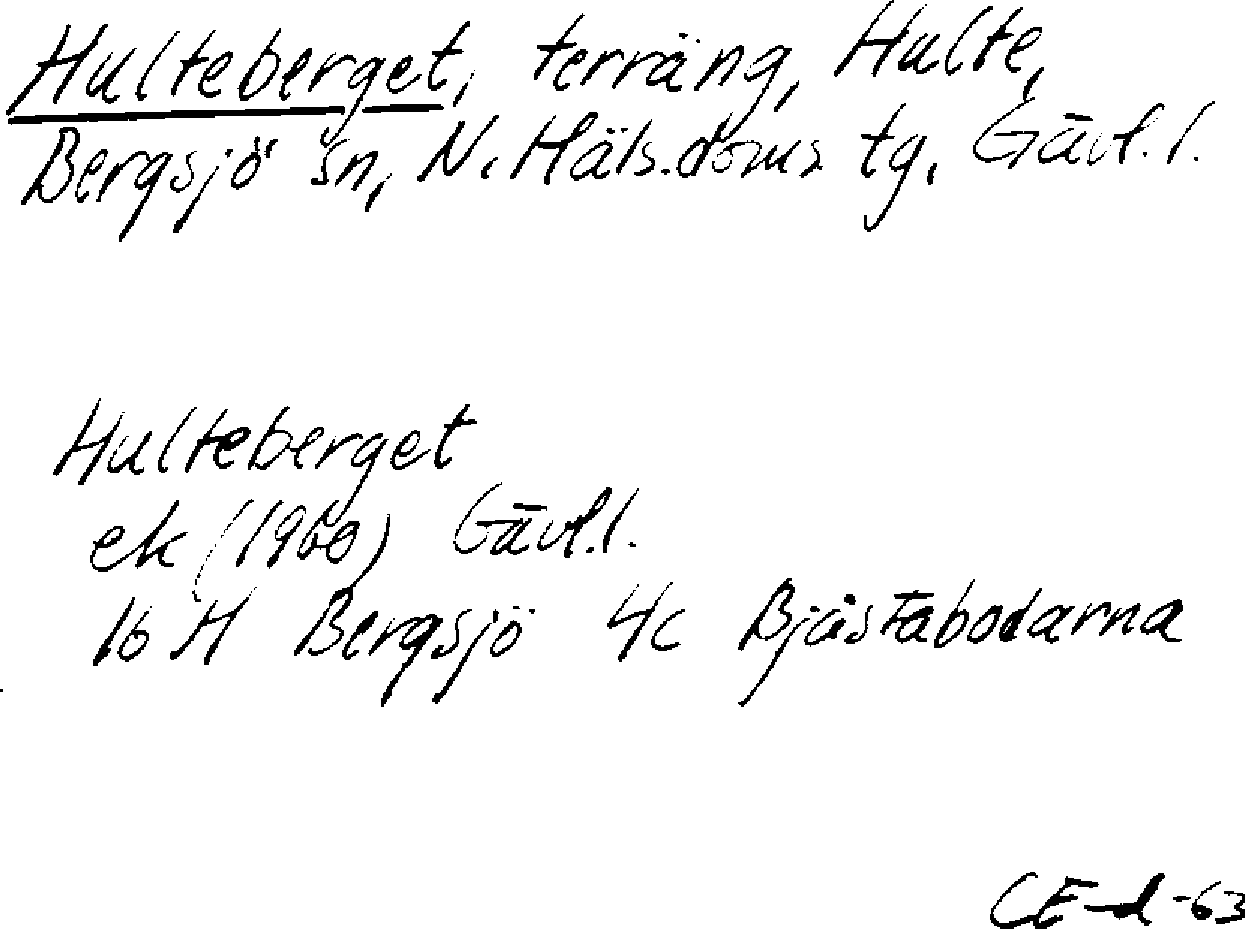 Hulteberget, terräng, Hulte,
Bergsjö sn, N. Häls. doms tg, Gävl. l.
Hulteberget
ek (1960) Gävl. l.
16 H Bergsjö 4c Bjåstabodarna
CE-d -63